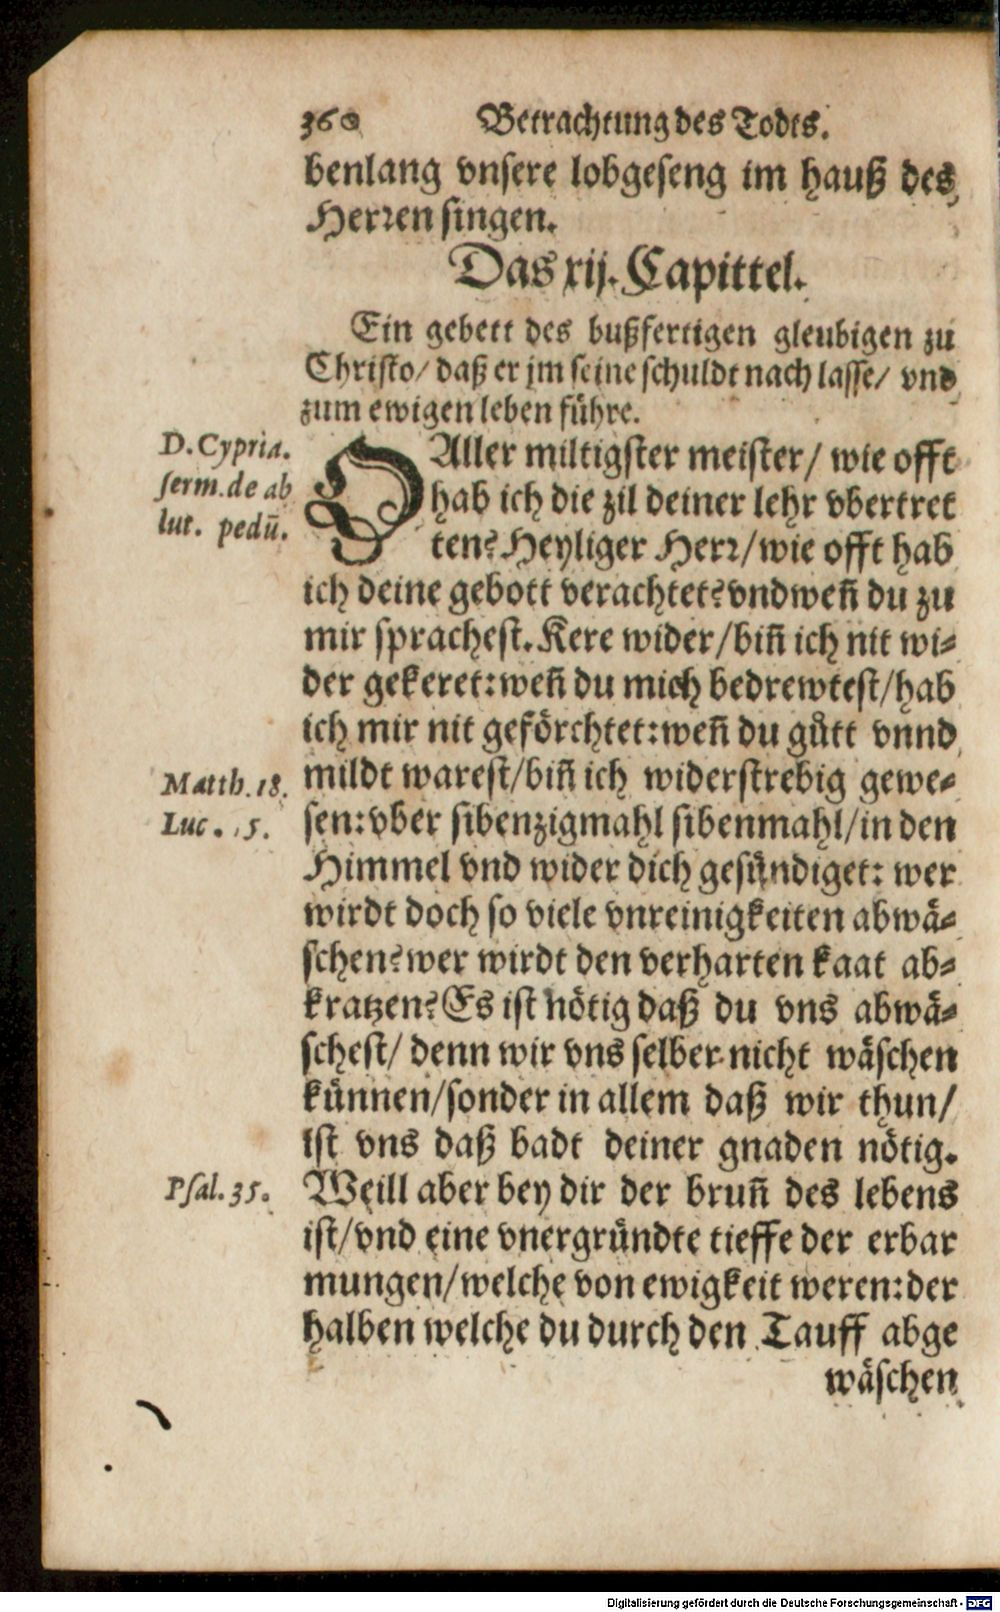 360 Betrachtung des Todts.
benlang vnsere lobgeseng im hauß des
Herren singen.
Das xij. Capittel.
Ein gebett des bußfertigen gleubigen zu
Christo/ daß er jm seine schuldt nach lasse/ vnd
zum ewigen leben führe.
D. Cypria.
serm. de ab
lut. pedū.
O Aller miltigster meister/ wie offt
hab ich die zil deiner lehr vbertret
ten? Heyliger Herr/ wie offt hab
ich deine gebott verachtet? vnd weñ du zu
mir sprachest. Kere wider/ biñ ich nit wi-
der gekeret: weñ du mich bedrewtest/ hab
ich mir nit geförchtet: weñ du gůtt vnnd
Matth. 18.
mildt warest/ biñ ich widerstrebig gewe-
Luc. 15.
sen: vber sibenzigmahl sibenmahl/ in den
Himmel vnd wider dich gesündiget: wer
wirdt doch so viele vnreinigkeiten abwä-
schen? wer wirdt den verharten kaat ab-
kratzen? Es ist nötig daß du vns abwä-
schest/ denn wir vns selber nicht wäschen
künnen/ sonder in allem daß wir thun/
ist vns daß badt deiner gnaden nötig.
Psal. 35.
Weill aber bey dir der bruñ des lebens
ist/ vnd eine vnergründte tieffe der erbar
mungen/ welche von ewigkeit weren: der
halben welche du durch den Tauff abge
wäschen
Digitalisierung gefördert durch die Deutsche Forschungsgemeinschaft - DFG